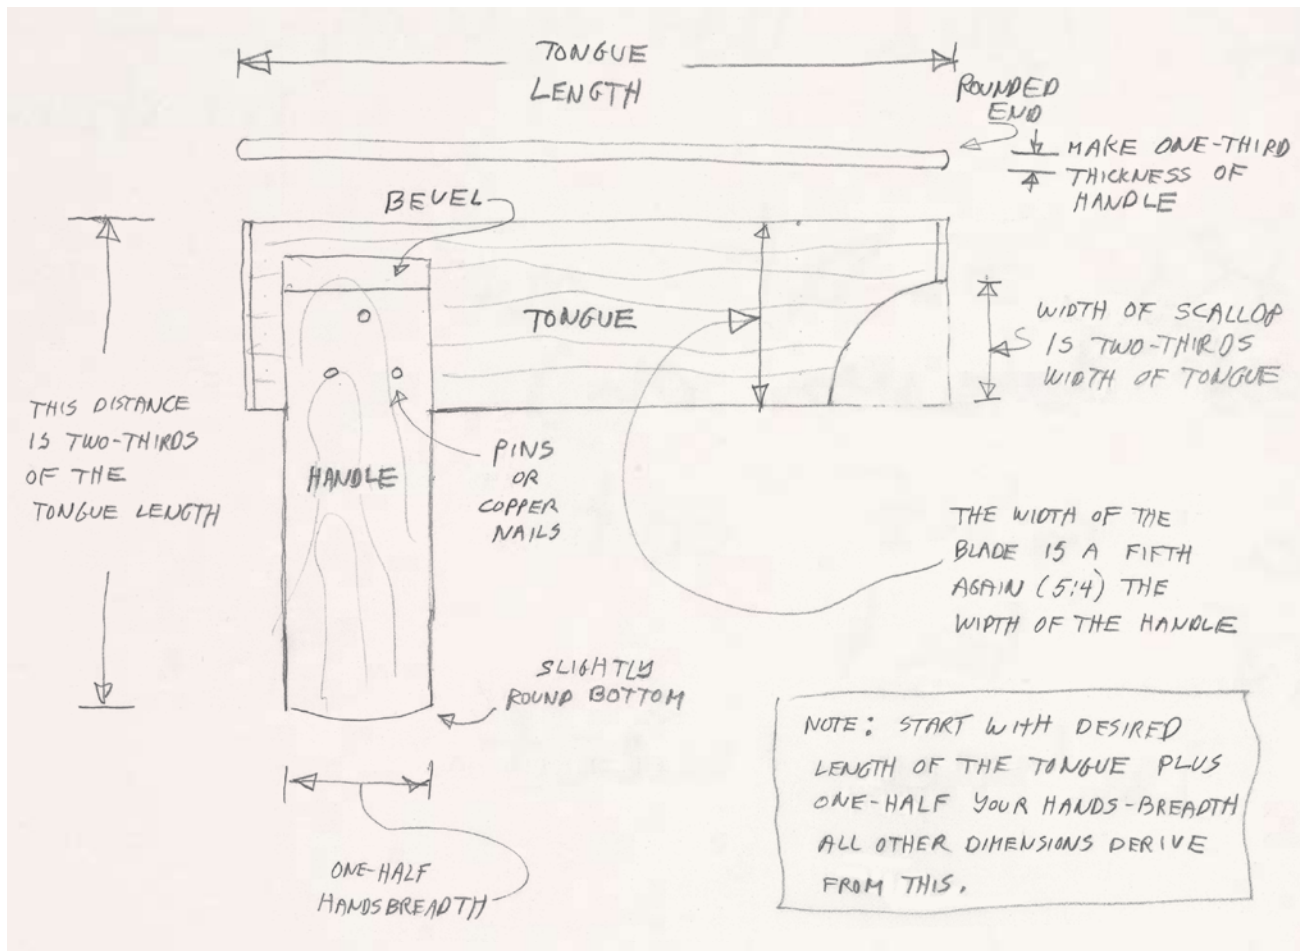 TONGUE
LENGTH
ROUNDED
END
MAKE ONE-THIRD
THICKNESS OF
HANDLE
BEVEL
TONGUE
WIDTH OF SCALLOP
IS TWO-THIRDS
WIDTH OF TONGUE
THIS DISTANCE
IS TWO-THIRDS
OF THE
TONGUE LENGTH
HANDLE
PINS
OR
COPPER
NAILS
THE WIDTH OF THE
BLADE IS A FIFTH
AGAIN (5:4) THE
WIDTH OF THE HANDLE
SLIGHTLY
ROUND BOTTOM
NOTE: START WITH DESIRED
LENGTH OF THE TONGUE PLUS
ONE-HALF YOUR HANDS-BREADTH
ALL OTHER DIMENSIONS DERIVE
FROM THIS.
ONE-HALF
HANDSBREADTH